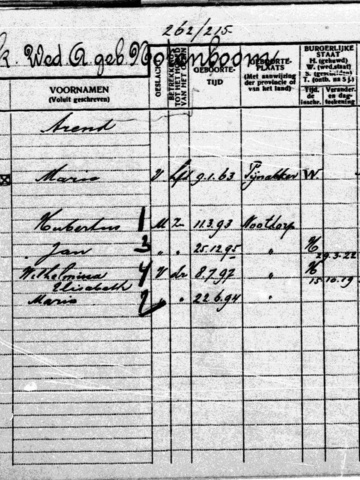 262/215.
k. Wed. A. geb. No enboom
VOORNAMEN
(Voluit geschreven)
GESLACHT
BETREKKING TOT HET HOOFD VAN HET GEZIN
GEBOORTE-
TIJD
GEBOORTE-
PLAATS
(Met aanwijzing
der provincie of
van het land)
BURGERLIJKE
STAAT
H. (gehuwd)
W. (wed.staat)
S. (gescheiden)
T. (ontb. n 5 j. sch)
Tijd. de inschr.
Verander. en dag-teekening
Arend
Maria V hfd 9.1.63 Pijnakker W.
Hubertus 1 M Zn 11.3.93 Nootdorp
Jan 3 " " 25.12.95 " H
29.3.22
Wilhelmina 4 V dr 8.7.97 " H
Elisabeth 15.10.19
Maria 2 " " 22.6.94 "